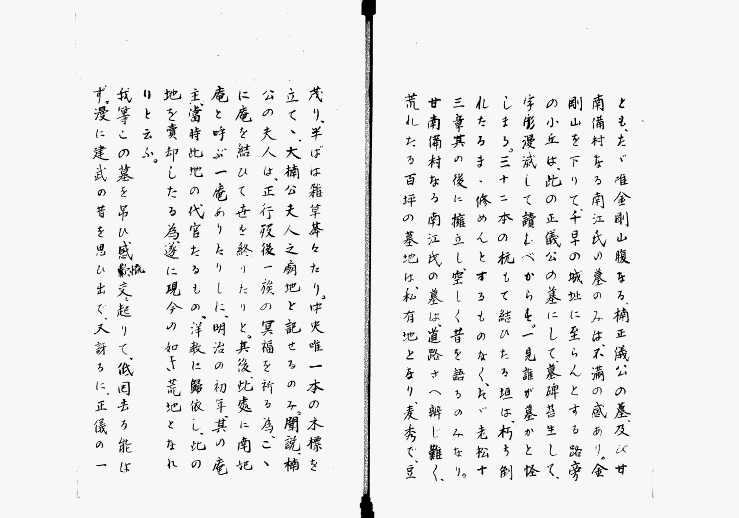 とも、たゞ唯金剛山腹なる、楠正儀公の墓、及び甘
南備村なる南江氏の墓のみは、不満の感あり。金
剛山を下りて、千早の城址に至らんとする路旁
の小丘は、此の正儀公の墓にして、墓碑苔生して、
字彫漫滅して讀むべからず。一見誰が墓かと怪
しまる。三十二本の杭もて結ひたる垣は、朽ち倒
れたるまゝ修めんとするものなく、たゞ老松十
三章其の後に擁立し、空しく昔を語るのみなり。
甘南備村なる南江氏の墓は、道路さへ辨じ難く、
荒れたる百坪の墓地は、私有地となり、麦秀で、豆
茂り、半ばは雑草莽々たり。中央唯一本の木標を
立てゝ、大楠公夫人之廟地と記せるのみ。聞説、楠
公の夫人は、正行歿後一族の冥福を祈る為、こゝ
に庵を結びて世を終りたりと。其後此處に南妃
庵と呼ぶ一庵ありたりしに、明治の初年、其の庵
主、當時此地の代官たるもの、洋教に歸依し、此の
地を賣却したる為、遂に現今の如き荒地となれ
りと云ふ。
我等この墓を吊ひ感慨交起りて、低回去る能は
ず。漫に建武の昔を思ひ出で、又訝るに、正儀の一